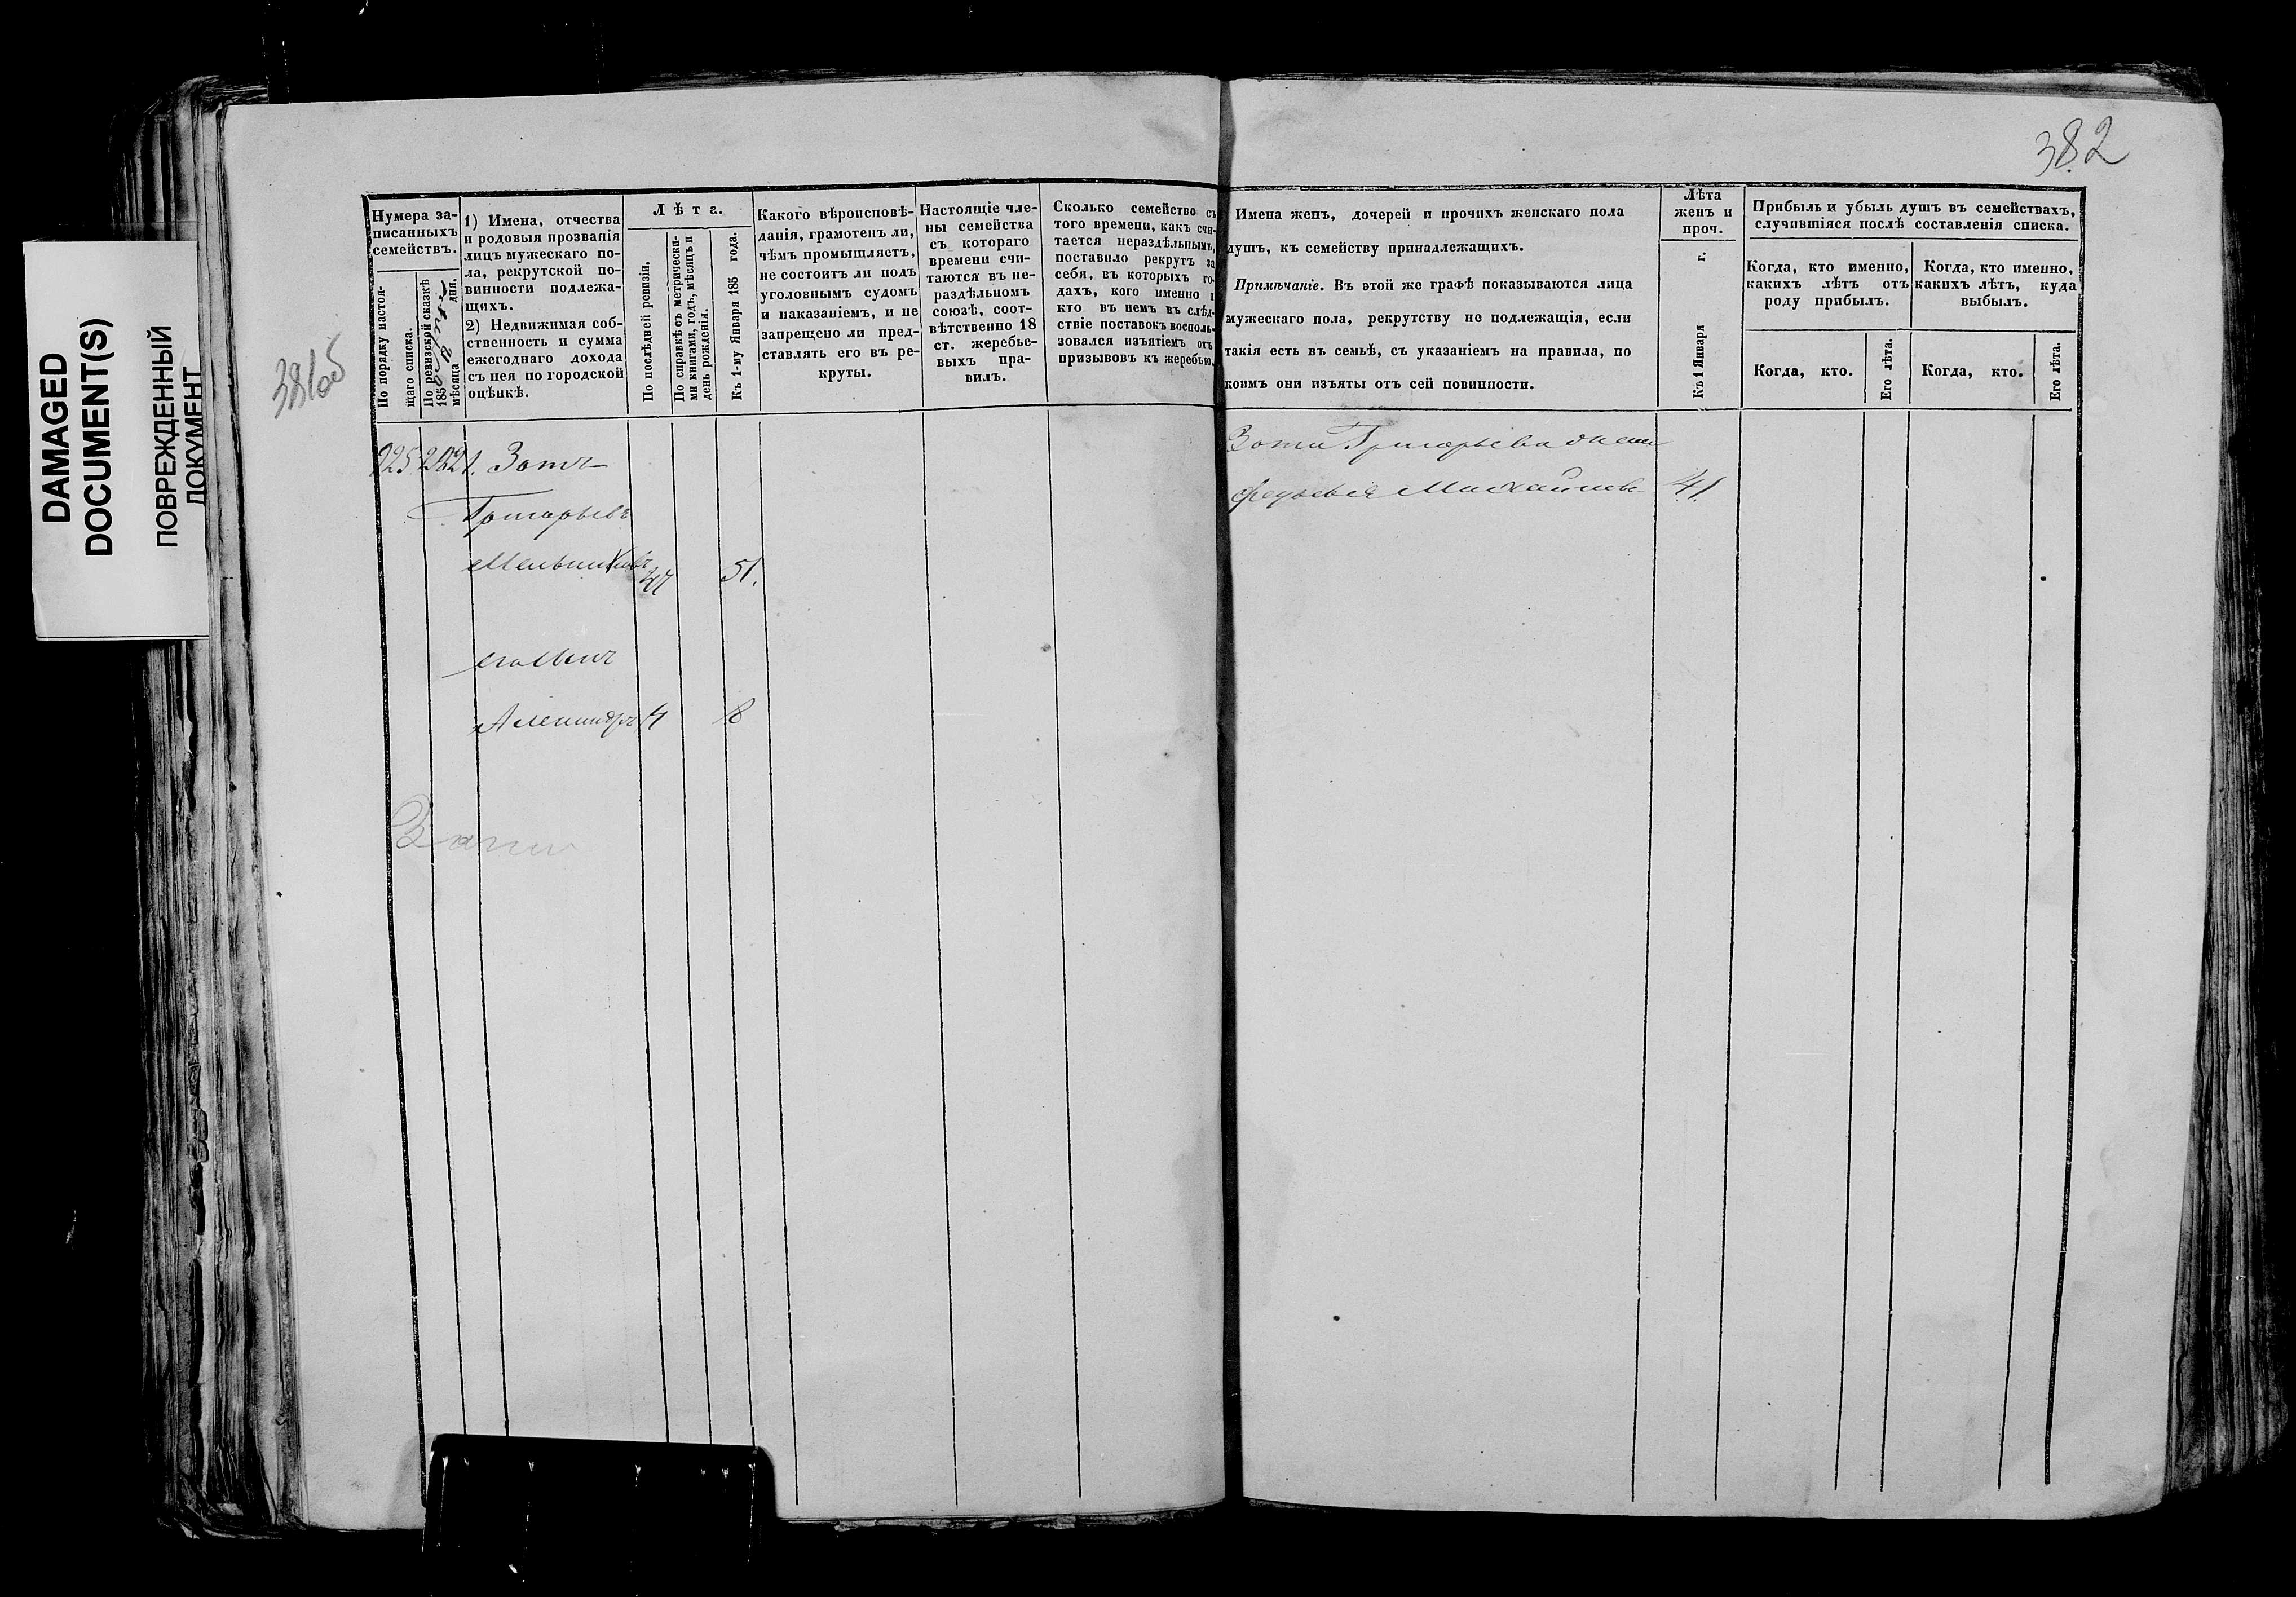 382
DAMAGED
DOCUMENT(S)
ПОВРЕЖДЕННЫЙ
ДОКУМЕНТ
Нумера за-
писанныхъ
семействъ.
По порядку настоя-
щаго списка.
По ревизской сказкѣ
185
мѣсяца дня.
1) Имена, отчества
и родовыя прозванія
лицъ мужескаго по-
ла, рекрутской по-
винности подлежа-
щихъ.
2) Недвижимая соб-
ственность и сумма
ежегоднаго дохода
съ нея по городской
оцѣнкѣ.
Лѣта.
По послѣдней ревизіи.
По справкѣ съ метрически-
ми книгами, годъ, мѣсяцъ и
день рожденія.
Къ 1-му Января 185 года.
Какого вѣроисповѣ-
данія, грамотенъ ли,
чѣмъ промышляетъ,
не состоитъ ли подъ
уголовнымъ судомъ
и наказаніемъ, и не
запрещено ли пред-
ставлять его въ ре-
круты.
Настоящіе чле-
ны семейства
съ котораго
времени счи-
таются въ не-
раздѣльномъ
союзѣ, соот-
вѣтственно 18
ст. жеребье-
выхъ пра-
вилъ.
Сколько семейство съ
того времени, какъ счи-
тается нераздѣльнымъ,
поставило рекрутъ за
себя, въ которыхъ го-
дахъ, кого именно и
кто въ немъ въ слѣд-
ствіе поставокъ восполь-
зовался изъятіемъ отъ
призывовъ къ жеребью.
Имена женъ, дочерей и прочихъ женскаго пола
душъ, къ семейству принадлежащихъ.
Примѣчаніе. Въ этой же графѣ показываются лица
мужескаго пола, рекрутству не подлежащія, если
такія есть въ семьѣ, съ указаніемъ на правила, по
коимъ они изъяты отъ сей повинности.
Лѣта
женъ и
проч.
Къ 1 Января г.
Прибыль и убыль душъ въ семействахъ,
случившіяся послѣ составленія списка.
Когда, кто именно,
какихъ лѣтъ отъ
роду прибылъ.
Когда, кто именно,
какихъ лѣтъ, куда
выбылъ.
Когда, кто.
Его лѣта.
Когда, кто.
Его лѣта.
Зотъ
Григорьевъ
Мельниковъ 51.
его сынъ
Александръ 18
Зота Григорьева жена
Федосья Михайлова 41.